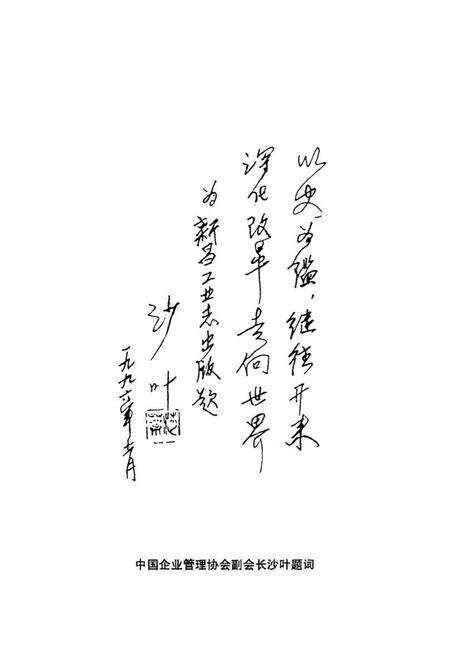 以史为鑑，继往开来
深化改革 走向世界
为新昌工业志出版题
沙叶
一九九六年十二月
中国企业管理协会副会长沙叶题词